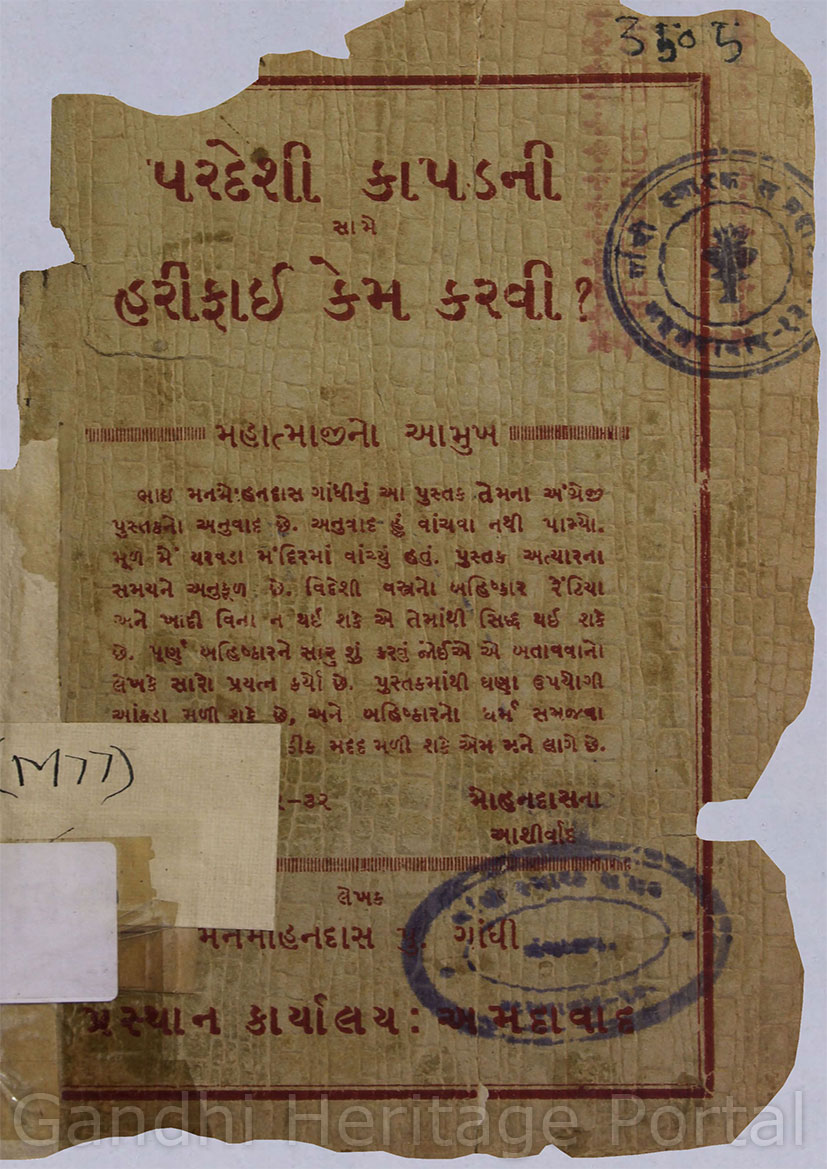 3505
પરદેશી કાપડની
સામે
હરીફાઈ કેમ કરવી?
મહાત્માજીનો આમુખ
ભાઇ મનમોહનદાસ ગાંધીનું આ પુસ્તક તેમના અંગ્રેજી
પુસ્તકનો અનુવાદ છે. અનુવાદ હું વાંચવા નથી પામ્યો.
મૂળ મેં યરવડા મંદિરમાં વાંચ્યું હતું. પુસ્તક અત્યારના
સમયને અનુકૂળ છે. વિદેશી વસ્ત્રનો બહિષ્કાર રેંટિયા
અને ખાદી વિના ન થઇ શકે એ તેમાંથી સિદ્ધ થઇ શકે
છે. પૂર્ણ બહિષ્કારને સારુ શું કરવું જોઈએ એ બતાવવાનો
લેખકે સારો પ્રયત્ન કર્યો છે. પુસ્તકમાંથી ઘણા ઉપયોગી
આંકડા મળી શકે છે, અને બહિષ્કારનો ધર્મ સમજવા
ઠીક મદદ મળી શકે એમ મને લાગે છે.
(M77)
-૩૨
મોહનદાસના
આશીર્વાદ
લેખક
મનમોહનદાસ પુ. ગાંધી
પ્રસ્થાન કાર્યાલય : અમદાવાદ
Gandhi Heritage Portal